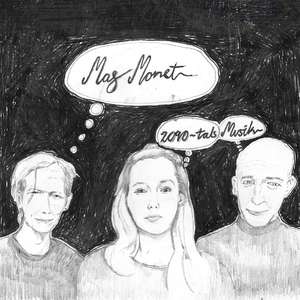 Mag Monet
2090-tals Musik